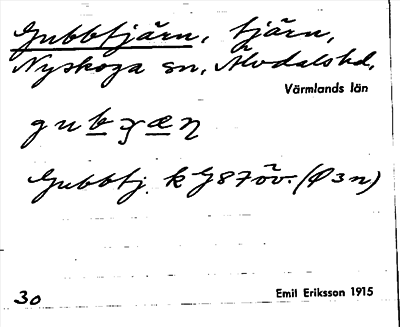 Gubbtjärn, tjärn,
Nyskoga sn, Älvdals hd,
Värmlands län
Gubbtj. k G87 öv. (Ø3n)
30
Emil Eriksson 1915